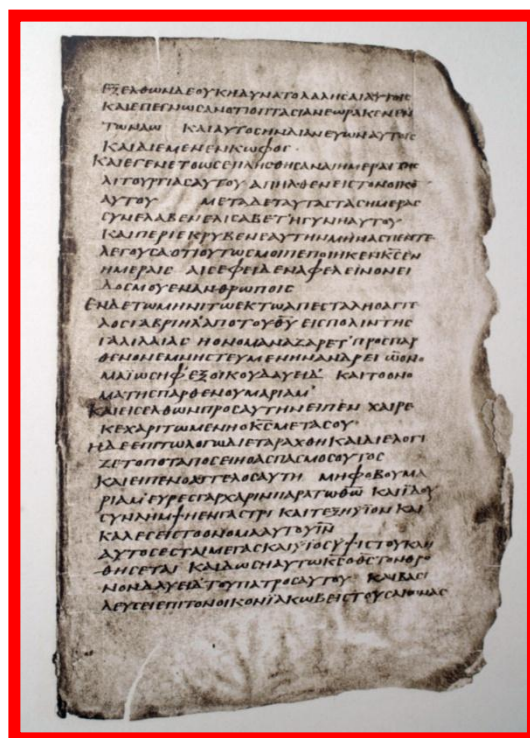 ΕΞΕΛΘΩΝΔΕΟΥΚΗΔΥΝΑΤΟΛΑΛΗΣΑΙΑΥΤΟΙΣ
ΚΑΙΕΠΕΓΝΩΣΑΝΟΤΙΟΠΤΑΣΙΑΝΕΩΡΑΚΕΝΕΝ
ΤΩΝΑΩ ΚΑΙΑΥΤΟΣΗΝΔΙΑΝΕΥΩΝΑΥΤΟΙΣ
ΚΑΙΔΙΕΜΕΝΕΝΚΩΦΟΣ·
ΚΑΙΕΓΕΝΕΤΟΩΣΕΠΛΗΣΘΗΣΑΝΑΙΗΜΕΡΑΙΤΗΣ
ΛΙΤΟΥΡΓΙΑΣΑΥΤΟΥ ΑΠΗΛΘΕΝΕΙΣΤΟΝΟΙΚΟ̅
ΑΥΤΟΥ ΜΕΤΑΔΕΤΑΥΤΑΣΤΑΣΗΜΕΡΑΣ
ΣΥΝΕΛΑΒΕΝΕΛΙΣΑΒΕΤΗΓΥΝΗΑΥΤΟΥ
ΚΑΙΠΕΡΙΕΚΡΥΒΕΝΕΑΥΤΗΝΜΗΝΑΣΠΕΝΤΕ
ΛΕΓΟΥΣΑΟΤΙΟΥΤΩΣΜΟΙΠΕΠΟΙΗΚΕΝΚ̅Σ̅ΕΝ
ΗΜΕΡΑΙΣ ΑΙΣΕΦΕΙΔΕΝΑΦΕΛΕΙΝΟΝΕΙ
ΔΟΣΜΟΥΕΝΑΝΘΡΩΠΟΙΣ
ΕΝΔΕΤΩΜΗΝΙΤΩΕΚΤΩΑΠΕΣΤΑΛΗΟΑΓΓΕ
ΛΟΣΓΑΒΡΙΗΛΑΠΟΤΟΥΘ̅Υ̅ ΕΙΣΠΟΛΙΝΤΗΣ
ΓΑΛΙΛΑΙΑΣ ΗΟΝΟΜΑΝΑΖΑΡΕΤ ΠΡΟΣΠΑΡ
ΘΕΝΟΝΕΜΝΗΣΤΕΥΜΕΝΗΝΑΝΔΡΕΙ ΩΟΝΟ
ΜΑΪΩΣΗΦ ΕΞΟΙΚΟΥΔΑΥΕΙΔ ΚΑΙΤΟΟΝΟ
ΜΑΤΗΣΠΑΡΘΕΝΟΥΜΑΡΙΑΜ
ΚΑΙΕΙΣΕΛΘΩΝΠΡΟΣΑΥΤΗΝΕΙΠΕΝ ΧΑΙΡΕ
ΚΕΧΑΡΙΤΩΜΕΝΗΟΚ̅Σ̅ΜΕΤΑΣΟΥ
ΗΔΕΕΠΙΤΩΛΟΓΩΔΙΕΤΑΡΑΧΘΗΚΑΙΔΙΕΛΟΓΙ
ΖΕΤΟΠΟΤΑΠΟΣΕΙΗΟΑΣΠΑΣΜΟΣΟΥΤΟΣ
ΚΑΙΕΙΠΕΝΟΑΓΓΕΛΟΣΑΥΤΗ ΜΗΦΟΒΟΥΜΑ
ΡΙΑΜ ΕΥΡΕΣΓΑΡΧΑΡΙΝΠΑΡΑΤΩΘ̅Ω̅ ΚΑΙΪΔΟΥ
ΣΥΝΛΗΜΨΗΕΝΓΑΣΤΡΙ ΚΑΙΤΕΞΗΥΪΟΝ ΚΑΙ
ΚΑΛΕΣΕΙΣΤΟΟΝΟΜΑΑΥΤΟΥΙ̅Ν̅
ΑΥΤΟΣΕΣΤΑΙΜΕΓΑΣΚΑΙΥΪΟΣΥΨΙΣΤΟΥΚΛΗ
ΘΗΣΕΤΑΙ ΚΑΙΔΩΣΗΑΥΤΩΚ̅Σ̅ΟΘ̅Σ̅ΤΟΝΘΡΟ
ΝΟΝΔΑΥΕΙΔΤΟΥΠΑΤΡΟΣΑΥΤΟΥ ΚΑΙΒΑΣΙ
ΛΕΥΣΕΙΕΠΙΤΟΝΟΙΚΟΝΪΑΚΩΒΕΙΣΤΟΥΣΑΙΩΝΑΣ